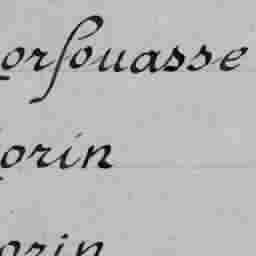 orſouasse
orin
orin